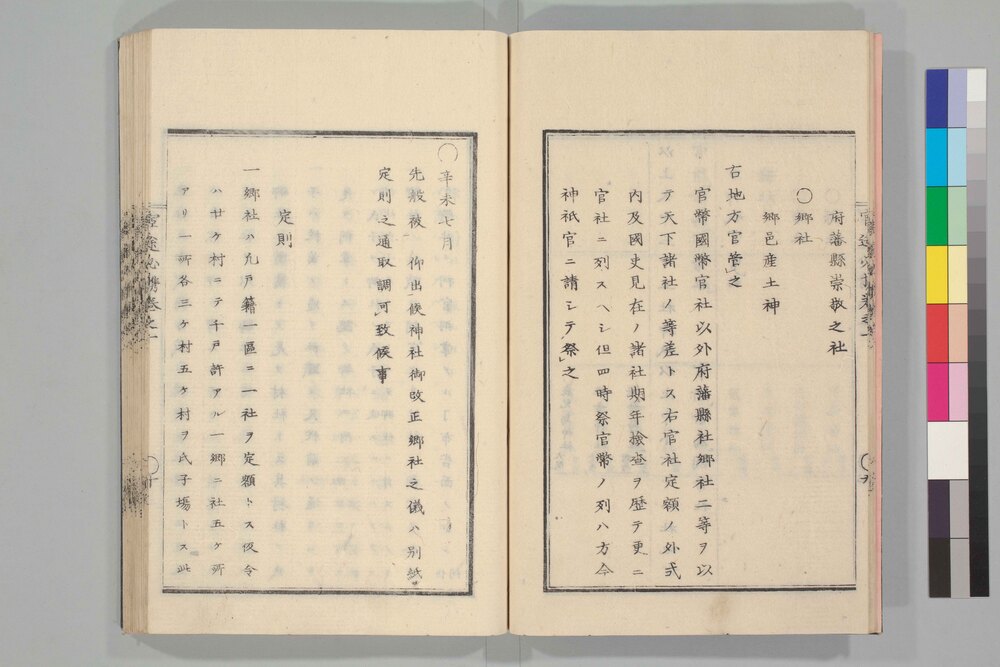 府藩縣崇敬之社
〇郷社
郷邑産土神
右地方官管」之
官幣國幣官社以外府藩縣社郷社二等ヲ以
テ天下諸社ノ等差トス右官社定額ノ外式
内及國史見在ノ諸社期年撿査ヲ歴テ更ニ
官社ニ列スヘシ但四時祭官幣ノ列ハ方今
神祇官ニ請シテ祭」之
〇辛未七月
先般被 仰出候神社御改正郷社之儀ハ別紙
定則之通取調可」致候事
定則
一郷社ハ凡戸籍一區ニ一社ヲ定額トス仮令
ハ廿ケ村ニテ千戸許アル一郷ニ社五ケ所
アリ一所各三ケ村五ケ村ヲ氏子場トス此